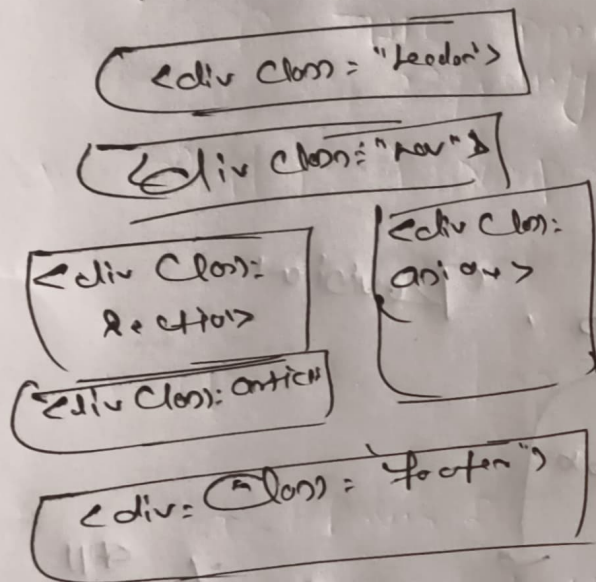 <div Class = "Leader">
<div Class = "nav">
<div Class:
Section>
<div Class:
<div Class: artich
<div = Class = "footer">